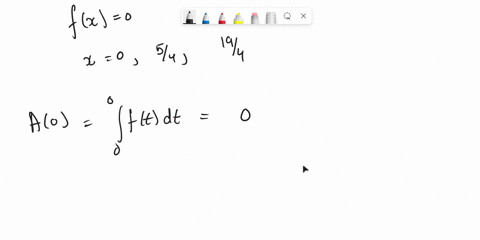 f(x) = 0
x = 0, 5/4, 19/4
A(0) = ∫₀⁰ f(t) dt = 0